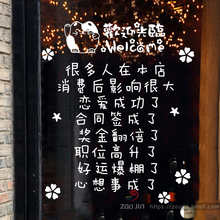 歡迎光臨
Welcome
很多人在本店
消费后影响很大
恋爱成功了
合同签成了
奖金翻倍了
职位高升了
好运爆棚了
心想事成了